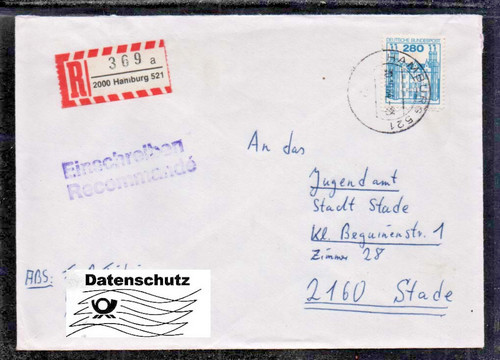 R
369 a
2000 Hamburg 521
DEUTSCHE BUNDESPOST
280
HAMBURG 521
Einschreiben
Recommandé
An das
Jugendamt
Stadt Stade
Kl. Beguinenstr. 1
Zimmer 28
2160 Stade
ABS:
Datenschutz